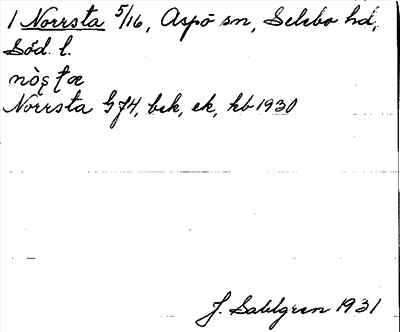 1 Norrsta 5/16, Aspö sn, Selebo hd,
Söd. l.
nòṣṭæ
Norrsta G74, bek, ek, kb 1930
J. Sahlgren 1931